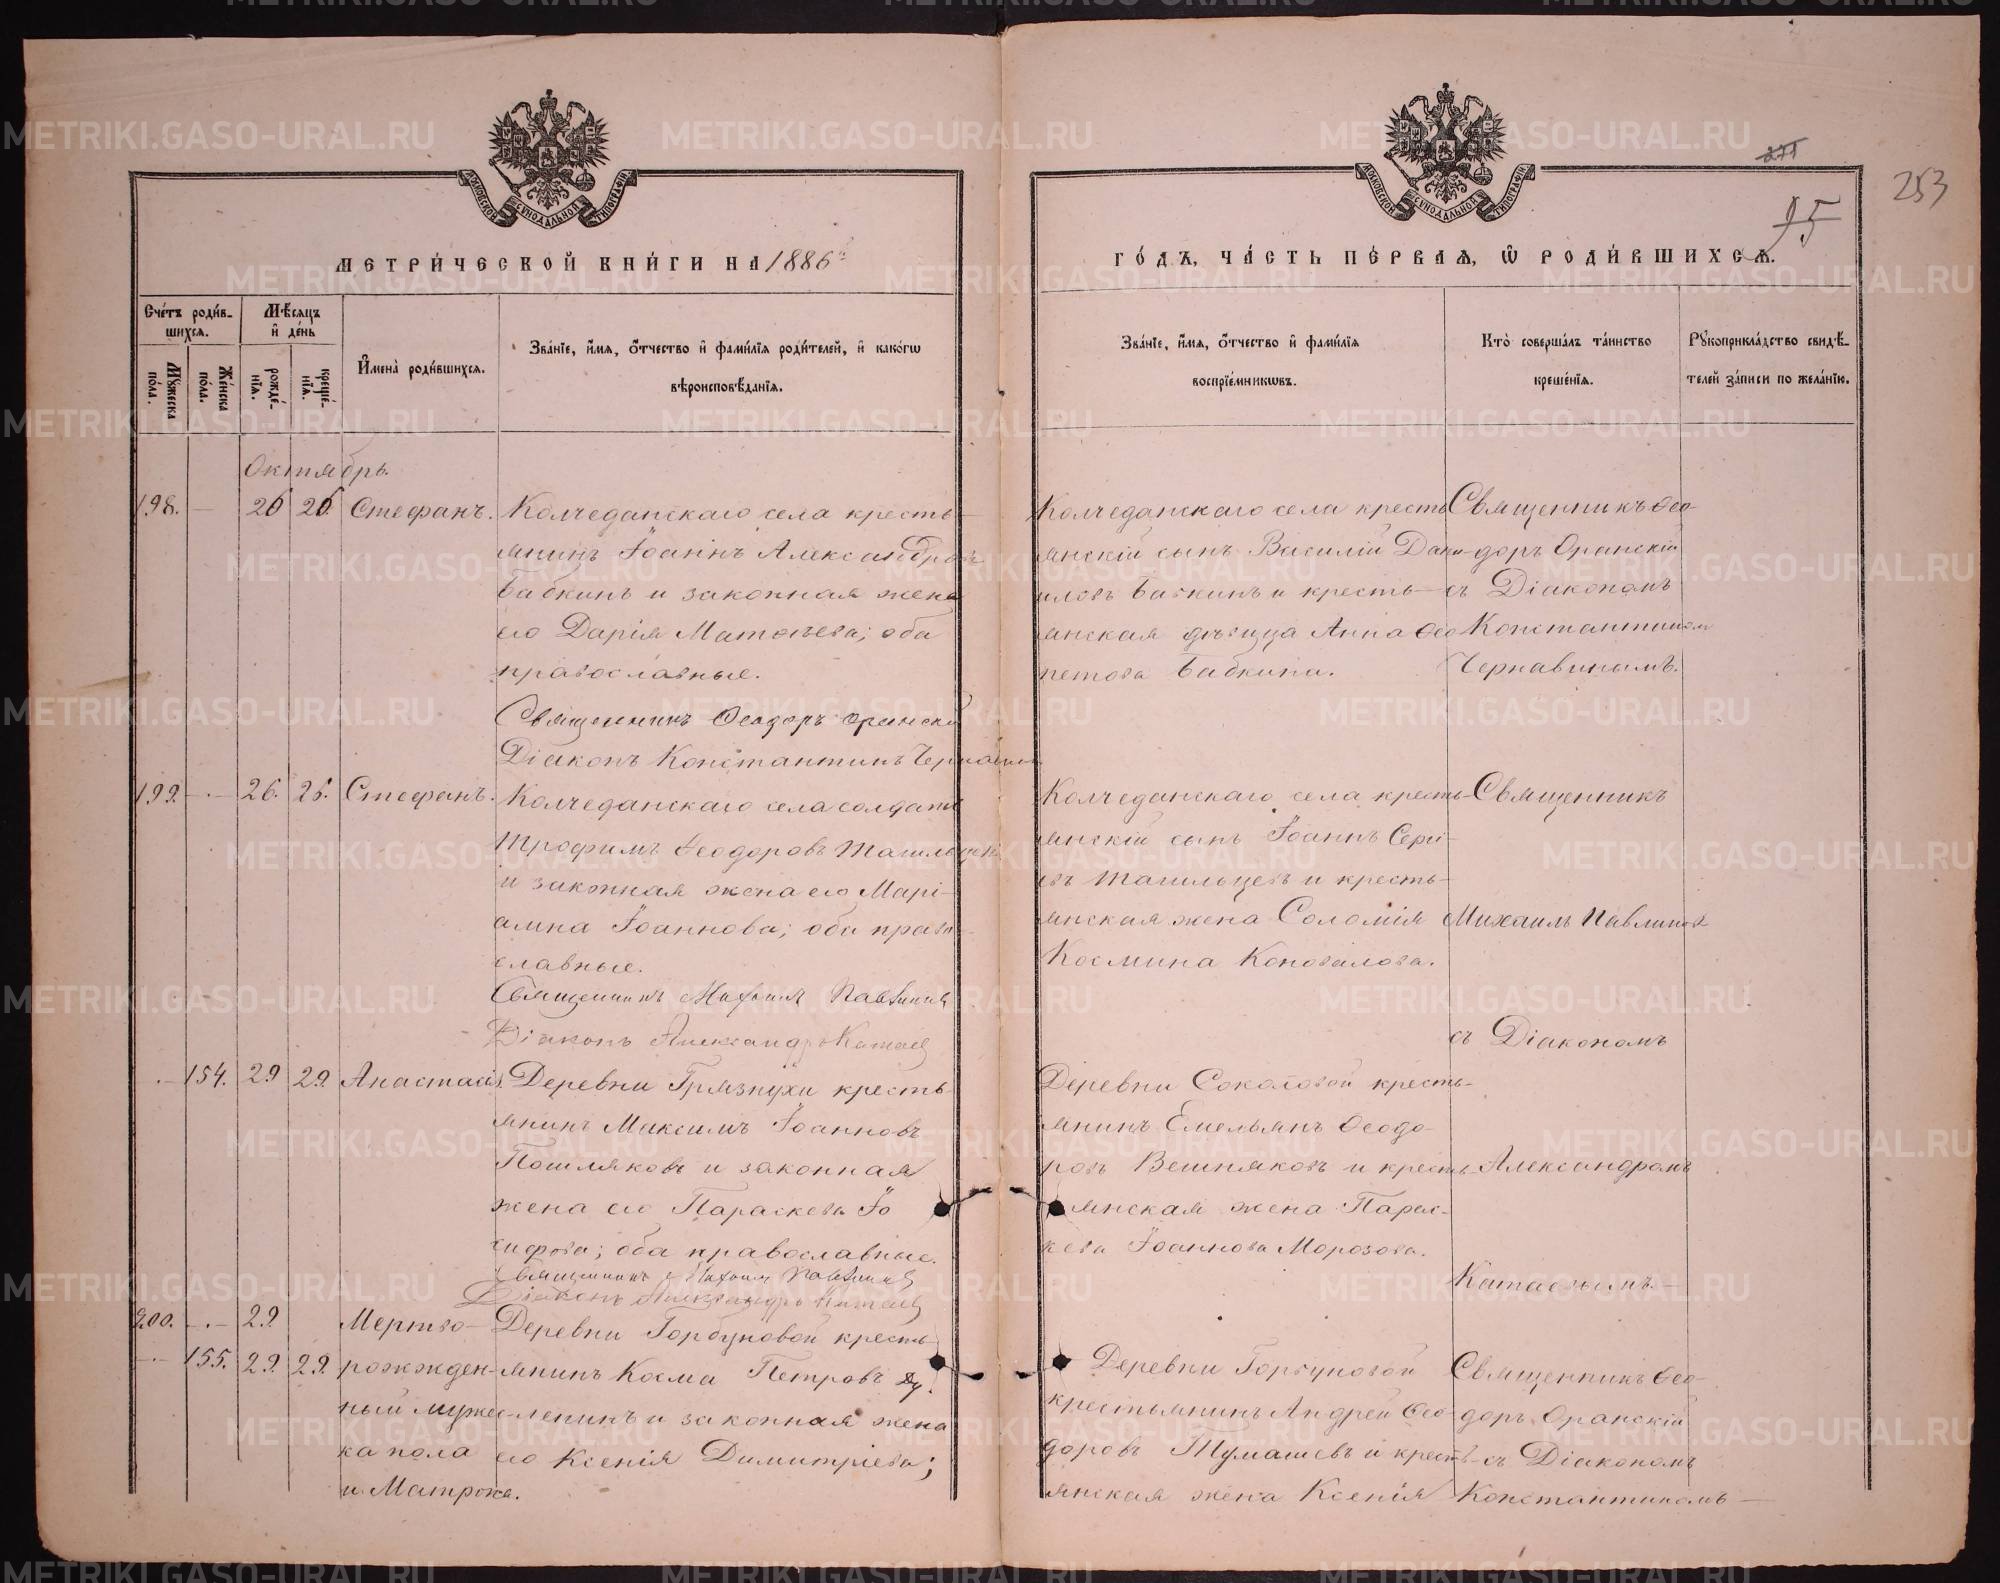 МЕТРИ́ЧЕСКОЙ КНИ́ГИ НА 1886 й
Сче́тъ роди́вшихся.
Мѣ́сяцъ и҆ де́нь
Мꙋжеска по́ла.
Же́нска по́ла.
рожде́нїя.
креще́нїя.
И҆мена̀ роди́вшихся.
Зва́нїе, и҆́мя, ѻ҆́тчество и҆ фами́лїя роди́телей, и҆ како́гѡ
вѣроисповѣ́данїя.
Октябрь.
198. — 26 26. Стефанъ. Колчеданскаго села кресть-
янинъ Іоаннъ Александровъ
Бабкинъ и законная жена
его Дарія Матѳеева; оба
православные.
Священникъ Ѳеодоръ Оранскій
Діаконъ Константинъ Чернавинъ
199. — 26. 26. Стефанъ. Колчеданскаго села солдатъ
Трофимъ Ѳеодоровъ Тагильцевъ
и законная жена его Марі-
амна Іоаннова; оба право-
славные.
Священникъ Михаилъ Павлиновъ
Діаконъ Александръ Катаевъ
— 154. 29 29. Анастасія. Деревни Грязнухи кресть-
янинъ Максимъ Іоанновъ
Пошляковъ и законная
жена его Параскева Іо
сифова; оба православные.
Священникъ Михаилъ Павлиновъ
Діаконъ Александръ Катаевъ
200. — 29. Мертво- Деревни Горбуновой кресть-
— 155. 29. 29. рожжден- янинъ Косма Петровъ
ный мужес- и законная жена
ка пола его Ксенія Димитріева;
и Матрона.
253
95
ГО́ДЪ, ЧА́СТЬ ПЕ́РВАЯ, Ѡ҆ РОДИ́ВШИХСЯ.
Зва́нїе, и҆́мя, ѻ҆́тчество и҆ фами́лїя
воспрїе́мникѡвъ.
Кто̀ соверша́лъ та́инство
креще́нїя.
Рꙋкоприкла́дство свидѣ́-
телей за́писи по жела́нїю.
Колчеданскаго села кресть-
янскій сынъ Василій Дани-
иловъ Бабкинъ и кресть-
янская дѣвица Анна Ѳео
пентова Бабкина.
Священникъ Ѳео-
доръ Оранскій
съ Діакономъ
Константином
Чернавинымъ.
Колчеданскаго села кресть-
янскій сынъ Іоаннъ Серги-
евъ Тагильцевъ и кресть-
янская жена Соломія
Космина Коновалова.
Священникъ
Михаилъ Павлиновъ
съ Діакономъ
Деревни Соколовой кресть-
янинъ Емельянъ Ѳеодо-
ровъ Вешняковъ и кресть-
янская жена Парас-
кева Іоаннова Морозова.
Александромъ
Катаевымъ —
Деревни Горбуновой
крестьянинъ Андрей Ѳео-
доровъ Тумашевъ и кресть-
янская жена Ксенія
Священникъ Ѳео-
доръ Оранскій
съ Діакономъ
Константиномъ —
METRIKI.GASO-URAL.RU